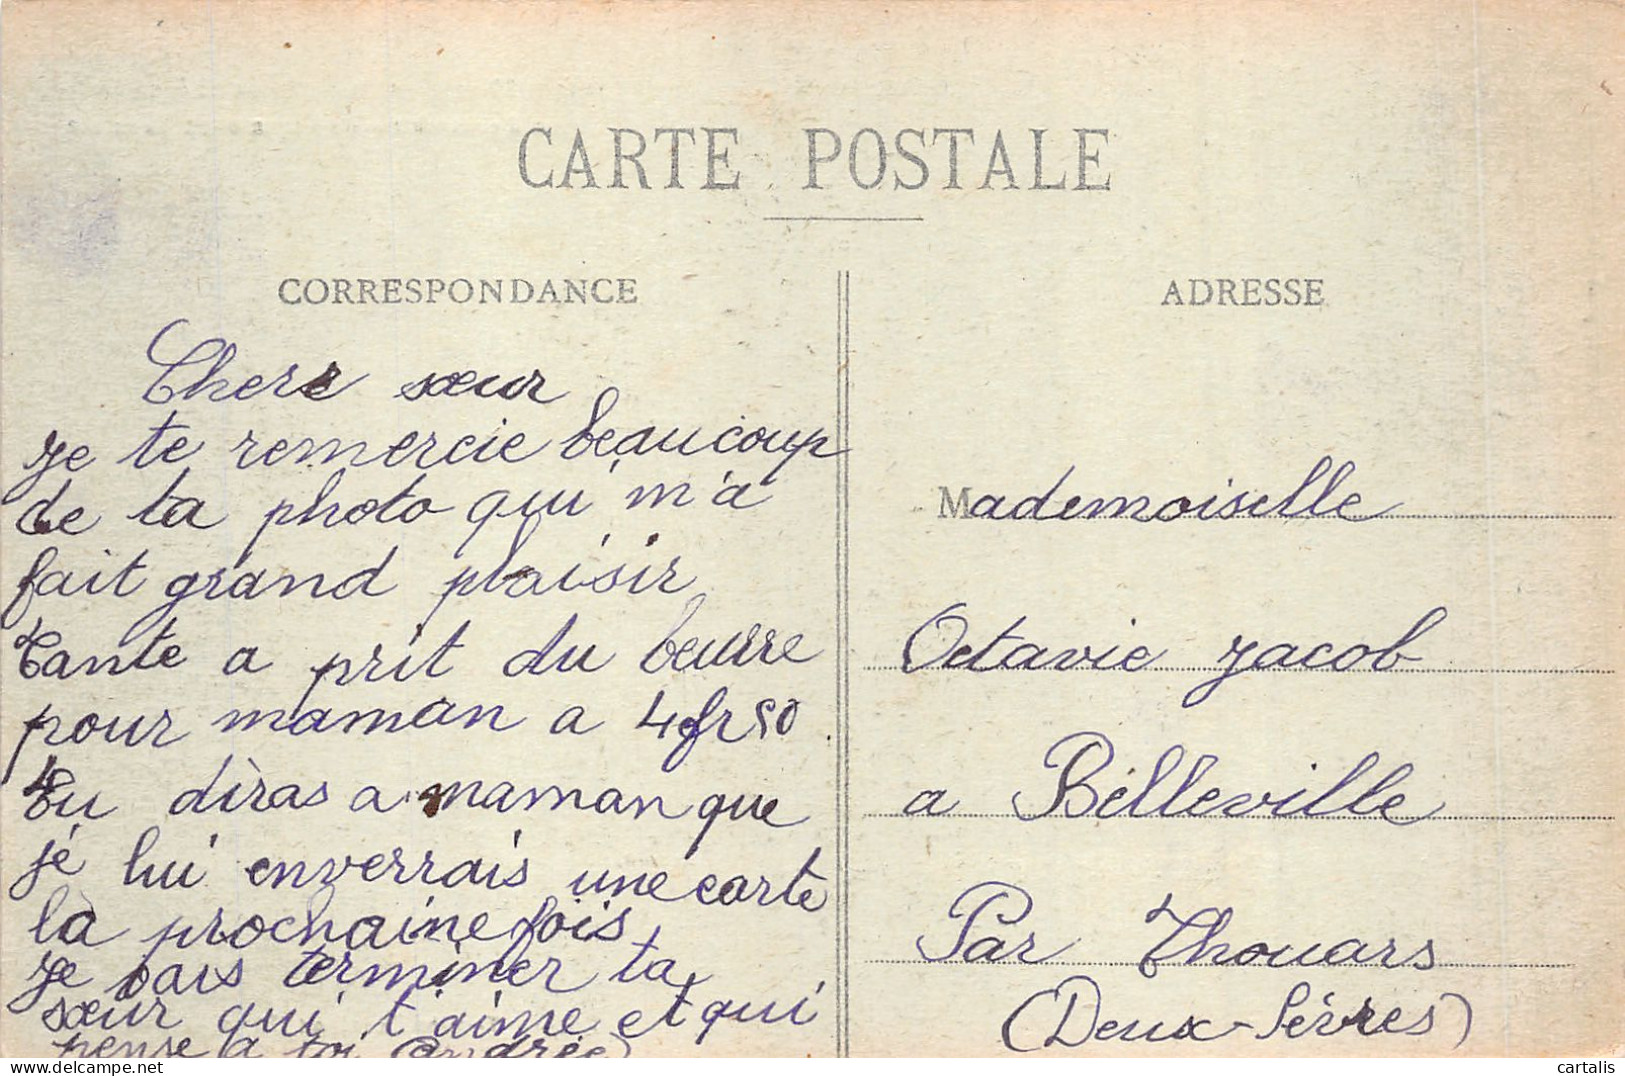 CARTE POSTALE
CORRESPONDANCE
Chere sœur
je te remercie beaucoup
de ta photo qui m'a
fait grand plaisir
Tante a prit du beurre
pour maman a 4 fr 50
tu diras a maman que
je lui enverrais une carte
la prochaine fois
je vais terminer ta
sœur qui t'aime et qui
pense a toi Andrée
ADRESSE
Mademoiselle
Octavie Jacob
a Belleville
Par Thouars
(Deux-Sèvres)
cartalis